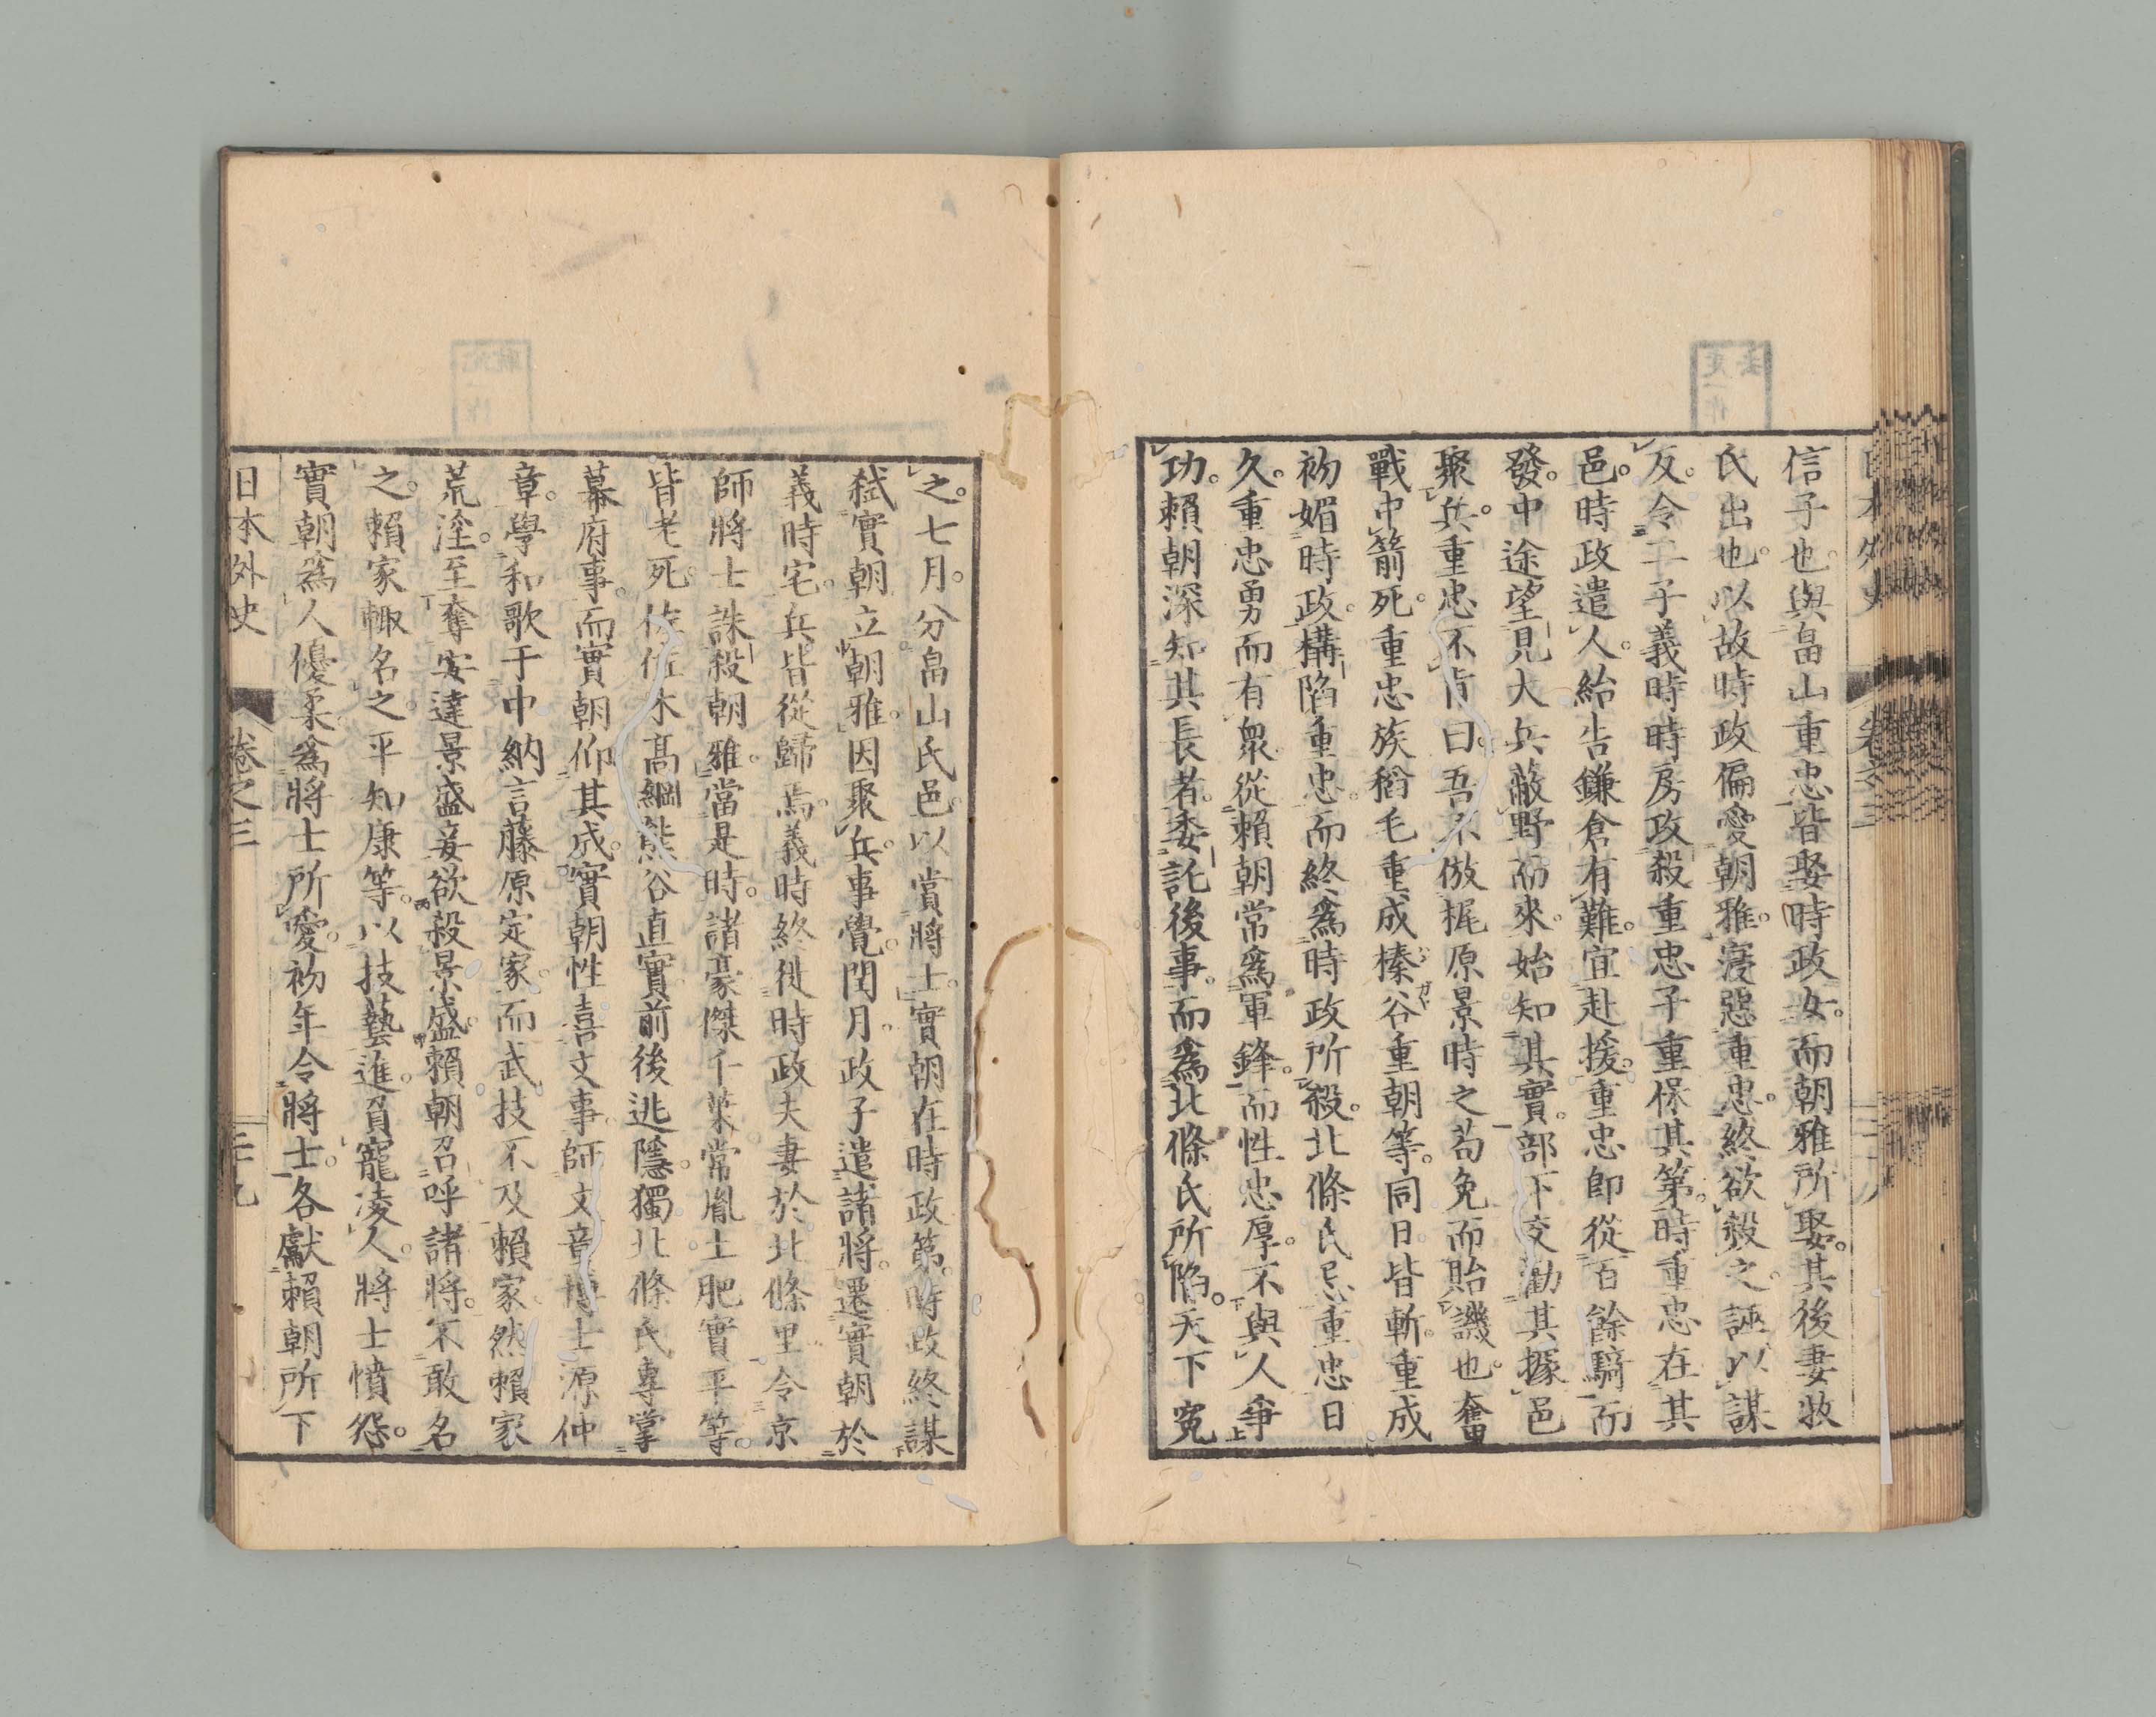 信子也。與畠山重忠皆娶時政女。而朝雅所娶。其後妻牧
氏出也。以故時政偏愛朝雅。寖惡重忠。終欲殺之。誣以謀
反。令二子義時時房攻殺重忠子重保其第。時重忠在其
邑。時政遣人。紿告鎌倉有難。宜赴援。重忠即從百餘騎而
發。中途望見大兵蔽野而來。始知其實。部下交勸其據邑
聚兵。重忠不肯曰。吾不倣梶原景時之苟免而貽譏也。奮
戰中箭死。重忠族稻毛重成榛谷重朝等。同日皆斬。重成
初媚時政。構陷重忠。而終爲時政所殺。北條氏忌重忠日
久。重忠勇而有衆。從賴朝常爲軍鋒。而性忠厚。不與人爭
功。賴朝深知其長者。委託後事。而爲北條氏所陷。天下冤
之。七月。分畠山氏邑。以賞將士。實朝在時政第。時政終謀
弑實朝立朝雅。因聚兵。事覺。閏月。政子遣諸將。還實朝於
義時宅。兵皆從歸焉。義時終徙時政夫妻於北條里。令京
師將士誅殺朝雅。當是時。諸豪傑千葉常胤土肥實平等。
皆老死。佐佐木高綱熊谷直實前後逃隱。獨北條氏專掌
幕府事。而實朝仰其成。實朝性喜文事。師文章博士源仲
章。學和歌于中納言藤原定家。而武技不及賴家。然賴家
荒淫。至奪安達景盛妾。欲殺景盛。賴朝召呼諸將。不敢名
之。賴家輙名之。平知康等。以技藝進。負寵凌人。將士憤怨。
實朝爲人優柔。爲將士所愛。初年令將士。各獻賴朝所下
日本外史　卷之三　二十九